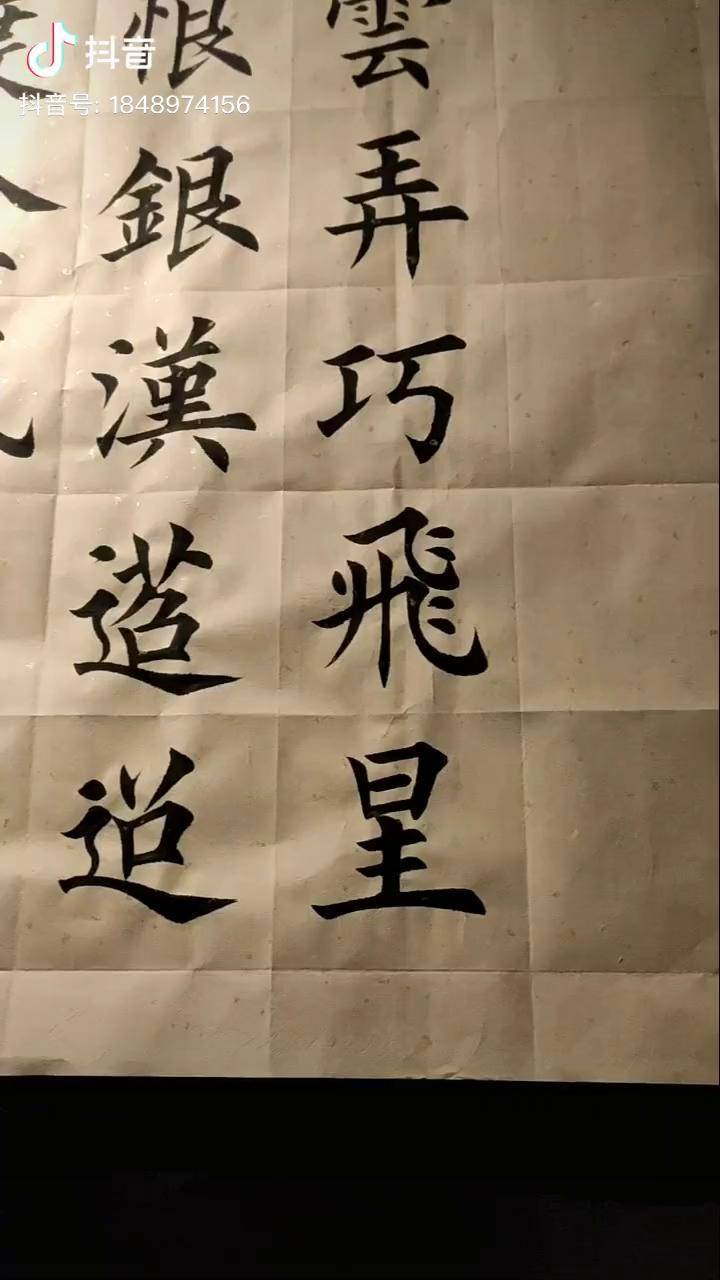 抖音
抖音号: 1848974156
雲弄巧飛星
恨銀漢迢迢